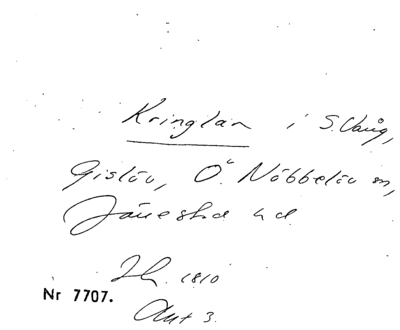 Kringlan i S. Vång,
Gislöv, Ö. Nöbbelöv sn,
Järrestad hd.
Jh. 1810
Nr 7707.
Akt 3.